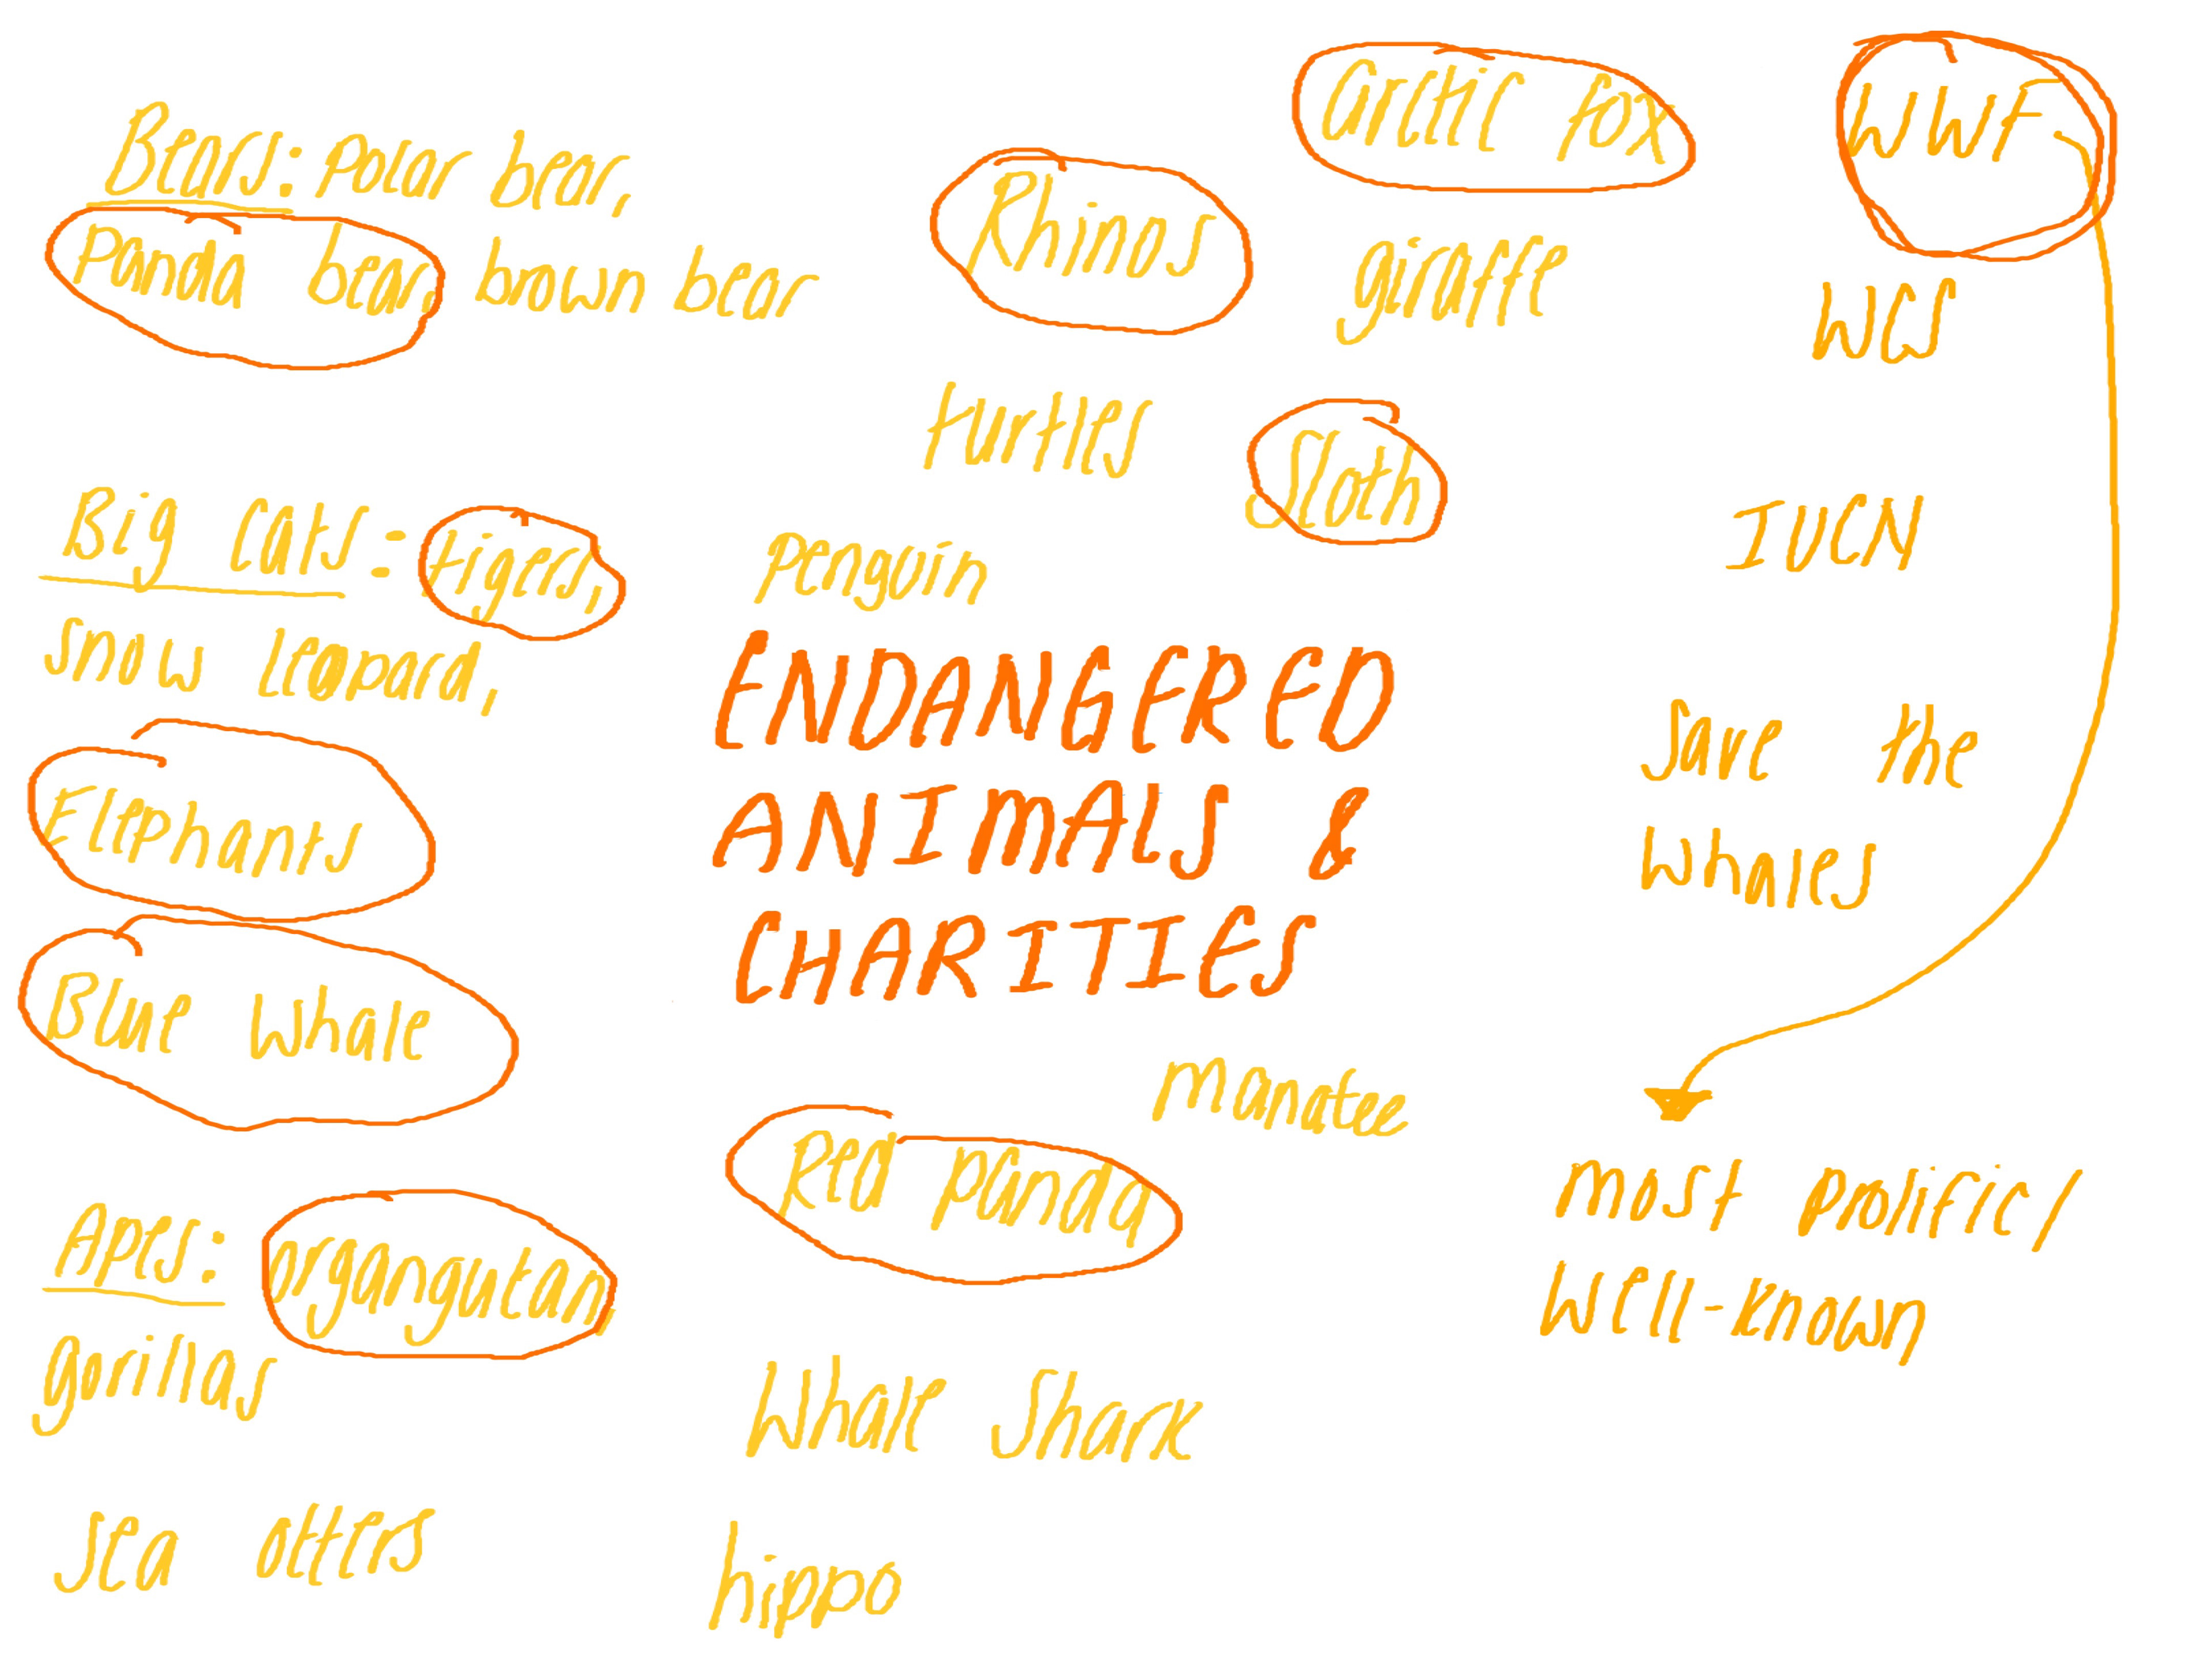 Bears: Polar bear,
Panda bear, brown bear
Rhinos
Arctic Fox
giraffe
WWF
WCS
turtles
Sloth
IUCN
Big Cats: tigers,
snow leopard,
Penguin
ENDANGERED
ANIMALS &
CHARITIES
Save the
Whales
Elephants
Blue Whale
manatee
Red Panda
most prolific,
well-known
Apes:
gorillas
Whale Shark
Sea otters
hippo